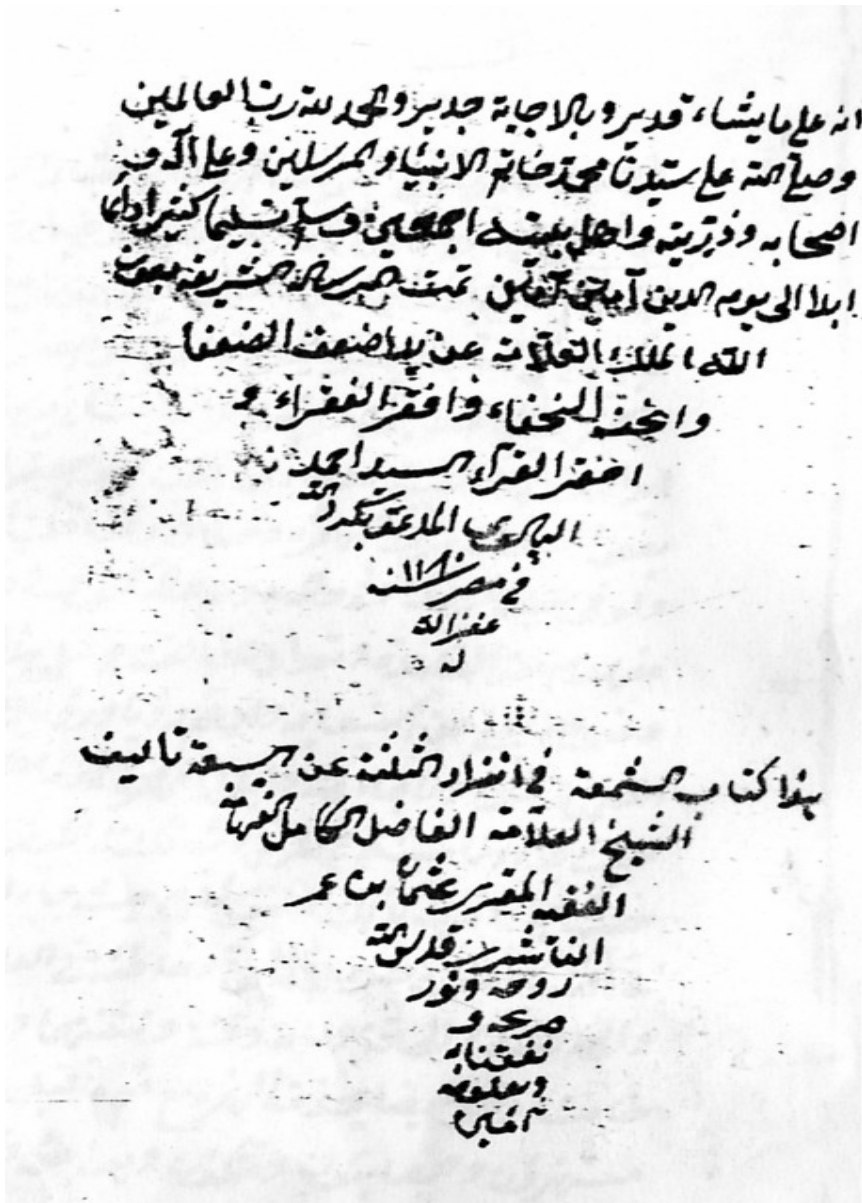 انه على ما يشاء قدير وبالاجابة جدير والحمد لله رب العالمين
وصلى الله على سيدنا محمد خاتم الانبياء والمرسلين وعلى آله و
اصحابه وذريته واهل بيته اجمعين وسلم تسليما كثيرا دائما
ابدا الى يوم الدين آمين آمين تمت الرسالة الشريفة بعون
الله الملك العلامة عن يد اضعف الضعفا
وانحف النحفاء وافقر الفقراء و
احقر القراء السيد احمد
المدعو
في مصر سنه ١١٨٠
غفر الله
له
هذا كتاب الشمعة في انفراد الثلثة عن السبعة تاليف
الشيخ العلامة الفاضل الكامل الفهامة
الفقيه المقرى عثمان بن عمر
الناشرى قدس الله
روحه ونور
ضريحه و
نفعنا به
وبعلومه
آمين